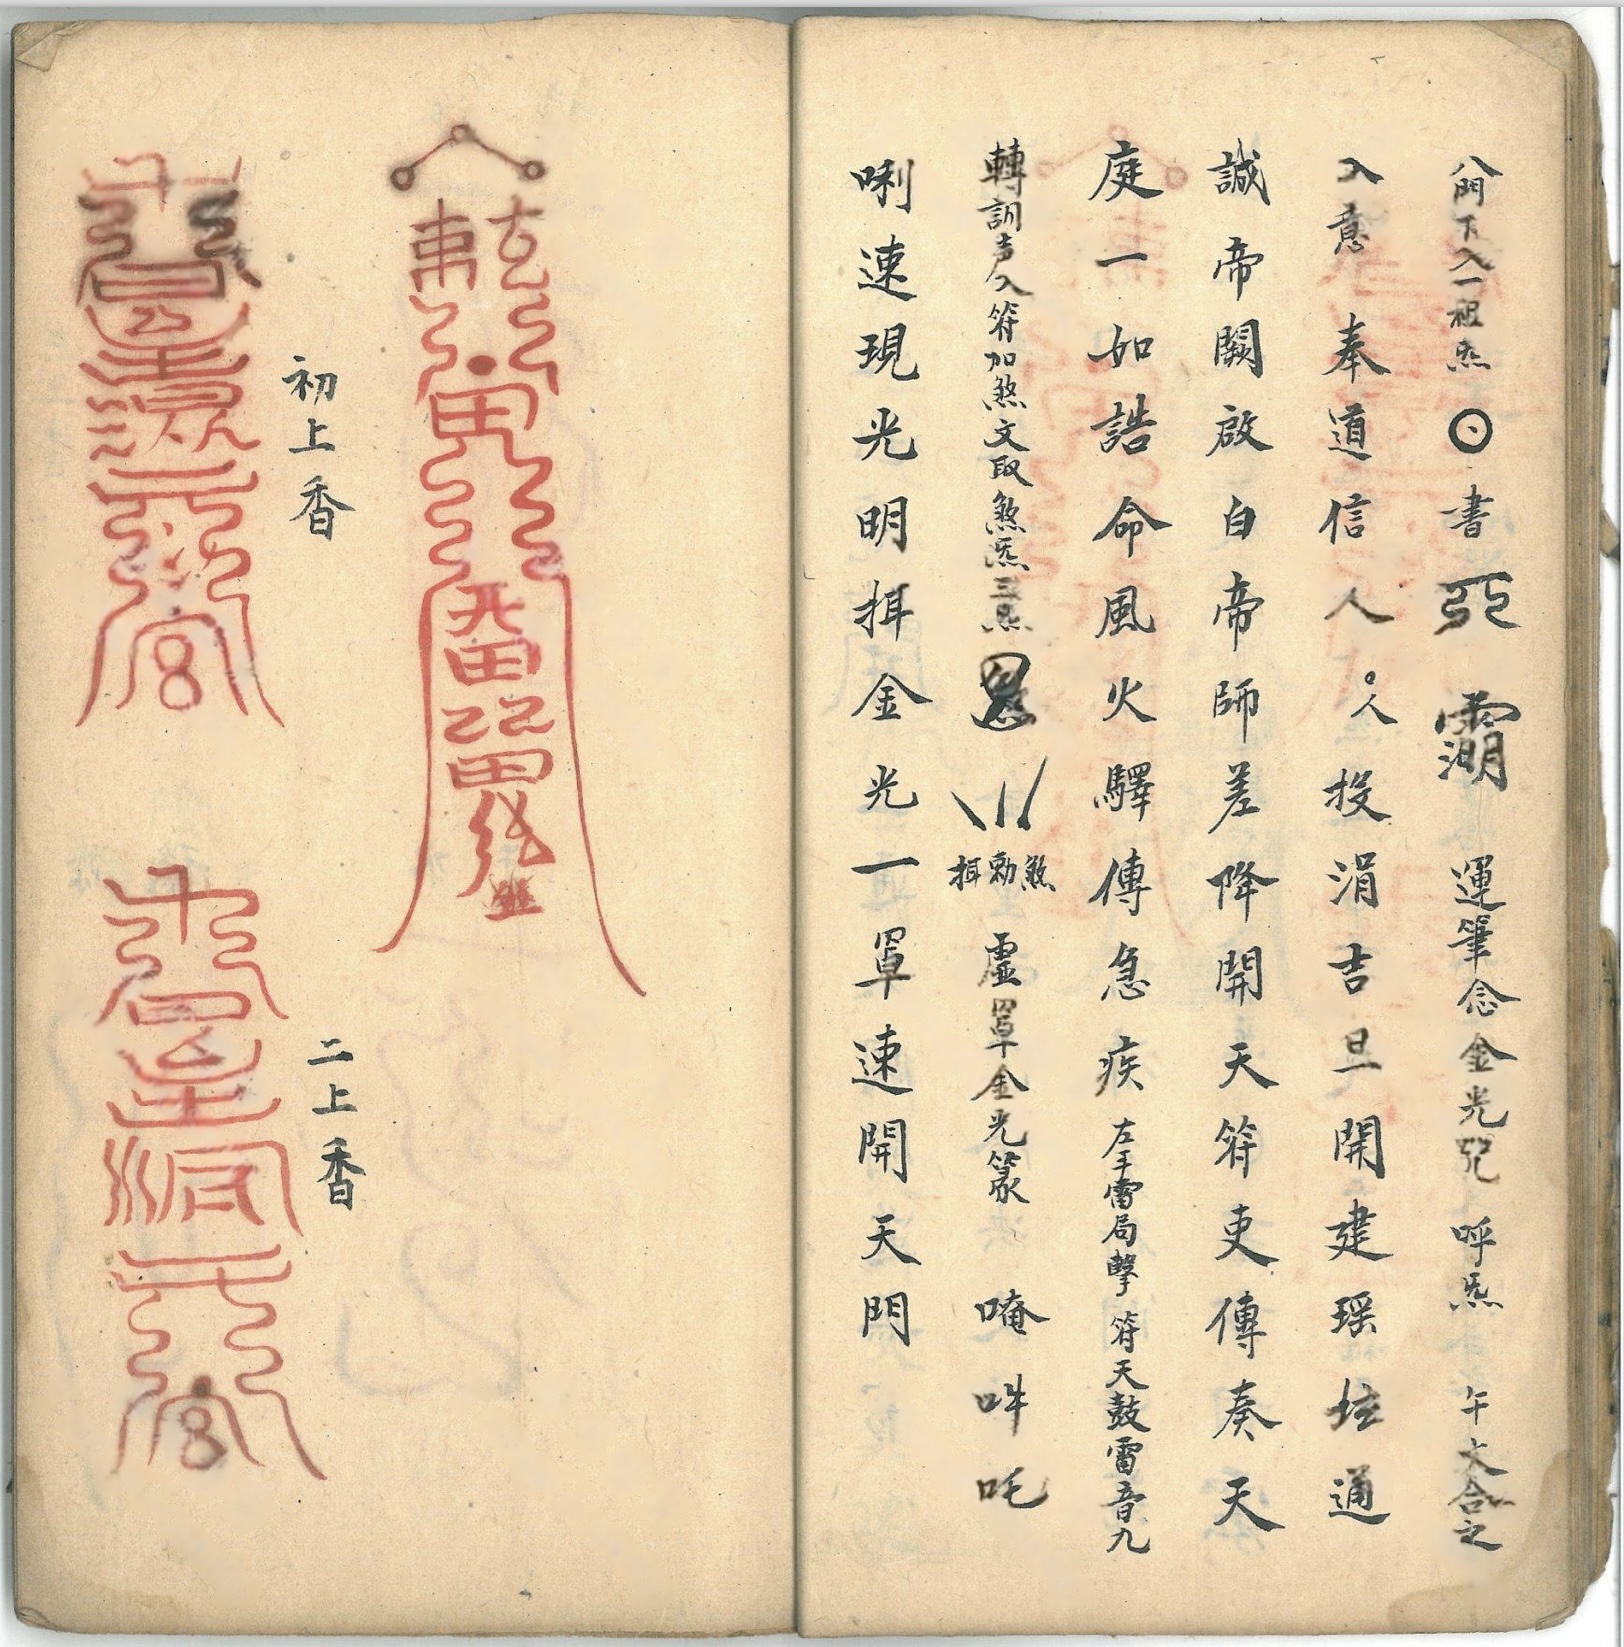 八門下入一祖炁 書 運筆念金光咒 呼炁 午文合之
入意 奉道信人 人投涓吉旦開建瑶坛通
誠帝闕啟白帝師差降開天符吏傳奏天
庭一如誥命風火驛傳急疾 左手雷局擊符天鼓雷音九
轉 訓声入符加煞文取煞炁三炁 揖勅煞 虛罩金光篆 唵吽吒
唎速現光明揖金光一罩速開天門
初上香
二上香